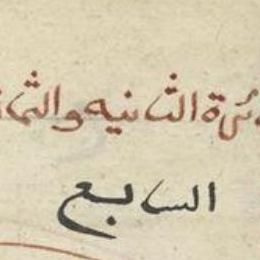 ئرة الثانيه والثما
السابع